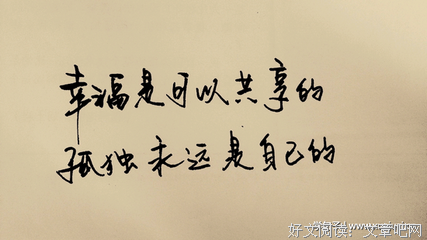 幸福是可以共享的
孤独永远是自己的
好文阅读：文章吧网